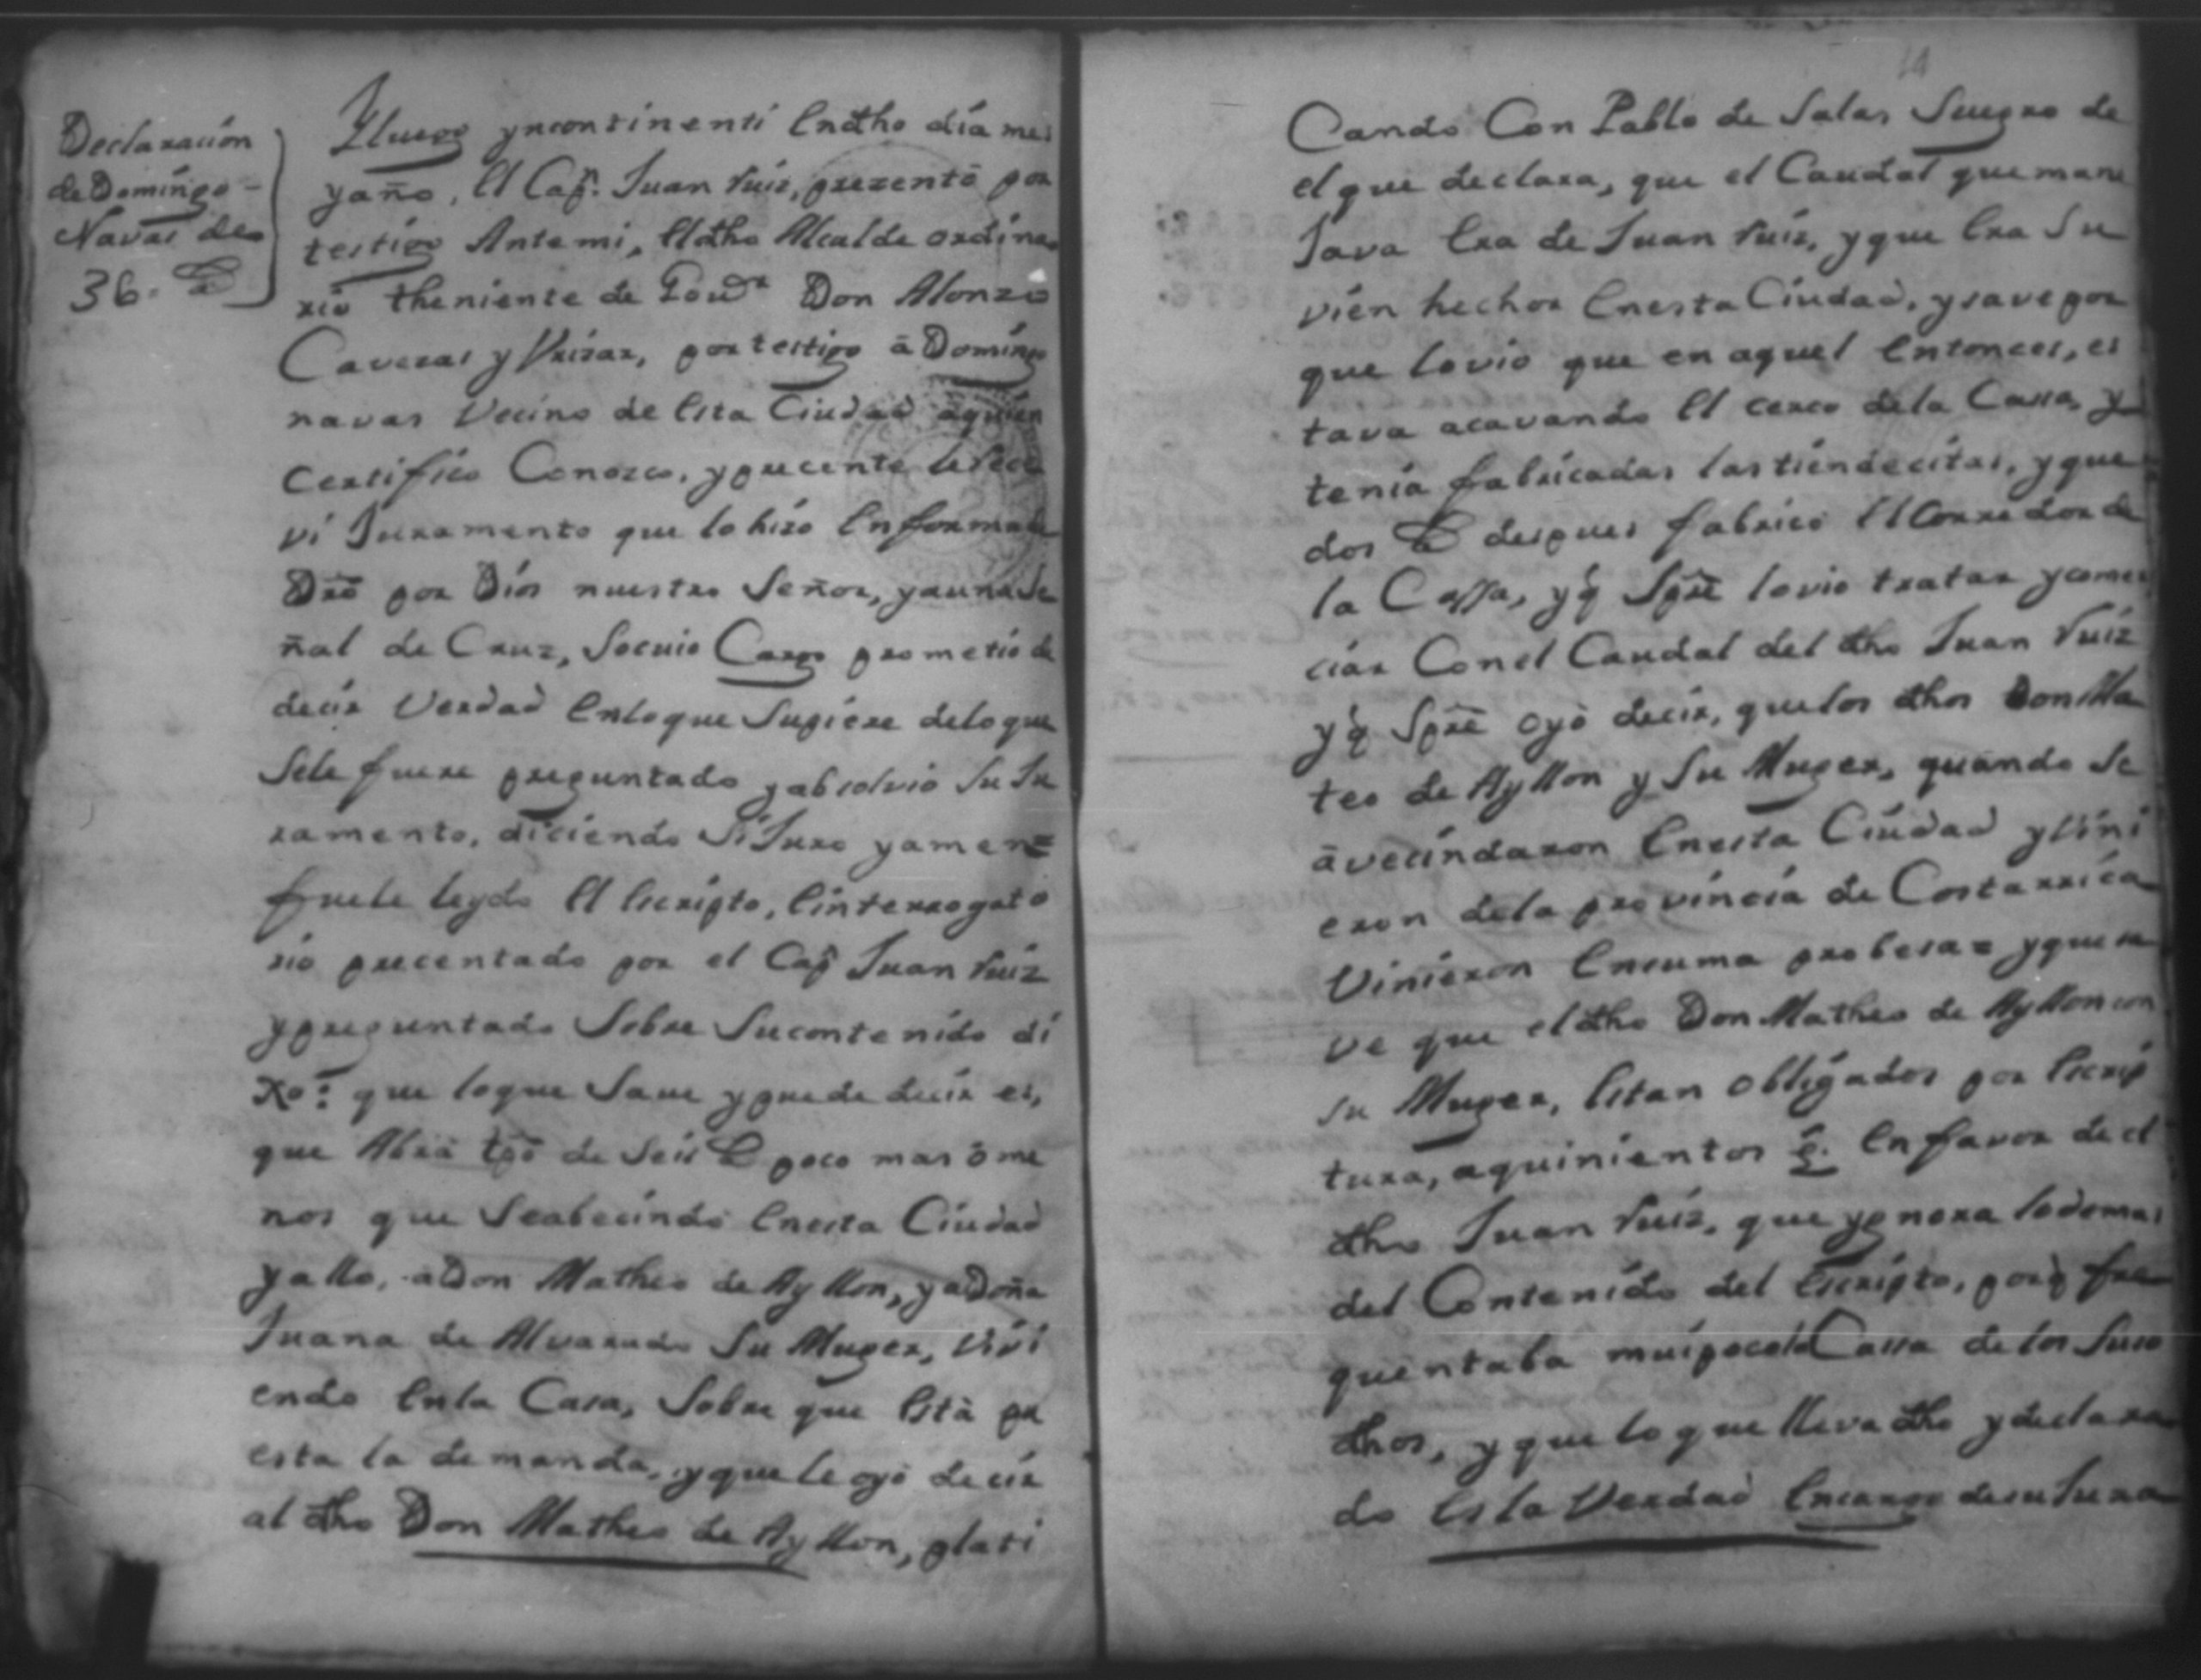 Declaración
de Domingo -
Navas de
36. as
Y luego yncontinenti En dho día mes
y año, El Capn. Juan Ruiz, prezentó por
testigo Ante mi, El dho Alcalde ordina
rio theniente de Gouor Don Alonzo
Caveras y Vrizar, por testigo â Domingo
navas Vecino de Esta Ciudad aquien
Certifíco Conozco, y precente le reci
vi Juramento que lo hizo En forma de
Dro por Díos nuestro Señor, y a una Se
ñal de Cruz, So cuio Cargo prometió de
decír Verdad En lo que Supiere de lo que
Se le fuere preguntado y absolvió Su Ju
ramento, diciendo Sí Juro y amen =
fuele leydo El Escripto, E interrogato
rio precentado por el Capn Juan Ruiz
y preguntado Sobre Su contenído di
xo: que lo que Save y puede decír es,
que Abrá tpo de Seis as poco mas ô me
nos que Se abecindó En esta Ciudad
y a llo, a Don Matheo de Ayllon, y a Doña
Juana de Alvarado Su Muger, Vivi
endo En la Casa, Sobre que Está pu
esta la demanda, y que le oyó decír
al dho Don Matheo de Ayllon, plati
14
Cando Con Pablo de Salas Suegro de
el que declara, que el Caudal que mane
Java Era de Juan Ruiz, y que Era Su
vien hechor En esta Ciudad, y save por
que lo vio que en aquel Entonces, es
tava acavando El cerco de la Cassa, y
tenía fabricadas las tiendecitas, y que
dos as despues fabricó El Corredor de
la Cassa, y q Spre lo vio tratar y comer
ciar Con el Caudal del dho Juan Ruiz
y q Spre oyó decír, que los dhos Don Ma
teo de Ayllon y Su Muger, quando Se
âvecindaron En esta Ciudad y Vini
eron de la província de Costarrica
Viniéron En suma probesa = y que sa
ve que el dho Don Matheo de Ayllon con
su Muger, Estan obligados por Escrip
tura, a quinientos ps. En favor de el
dho Juan Ruiz, que ygnora lo demas
del Contenído del Escrípto, por q fre
quentaba mui poco la Cassa de los Suso
dhos, y que lo que lleva dho y declara
do Es la Verdad En cargo de su Jura